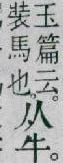 玉篇云。从牛。
裝馬也。